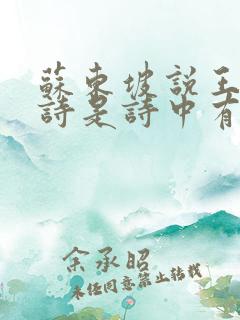 蘇東坡說王
詩是詩中有
余承昭
未经同意禁止转载